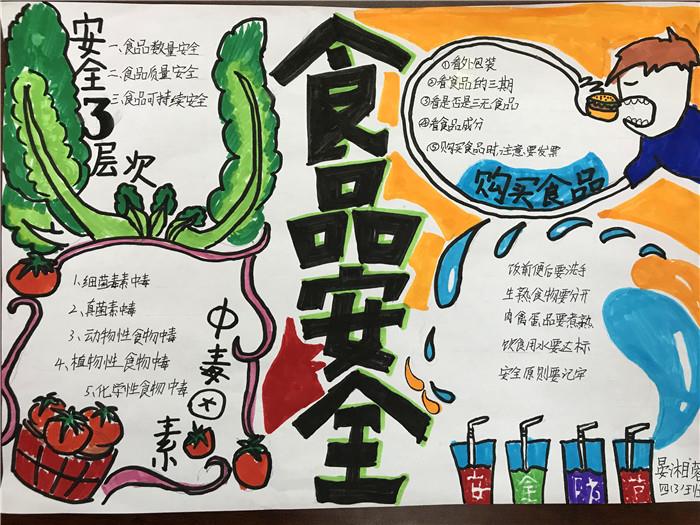 食品安全
安全3层次
一、食品数量安全
二、食品质量安全
三、食品可持续安全
①看外包装
②看食品的三期
③看是否是三无食品
④看食品成分
⑤购买食品时,注意要发票
购买食品
1.细菌毒素中毒
2、真菌素中毒
3、动物性食物中毒
4、植物性食物中毒
5、化学性食物中毒
中毒因素
饭前便后要洗手
生熟食物要分开
肉禽蛋品要煮熟
饮食用水要达标
安全原则要记牢
安全防范
晏湘